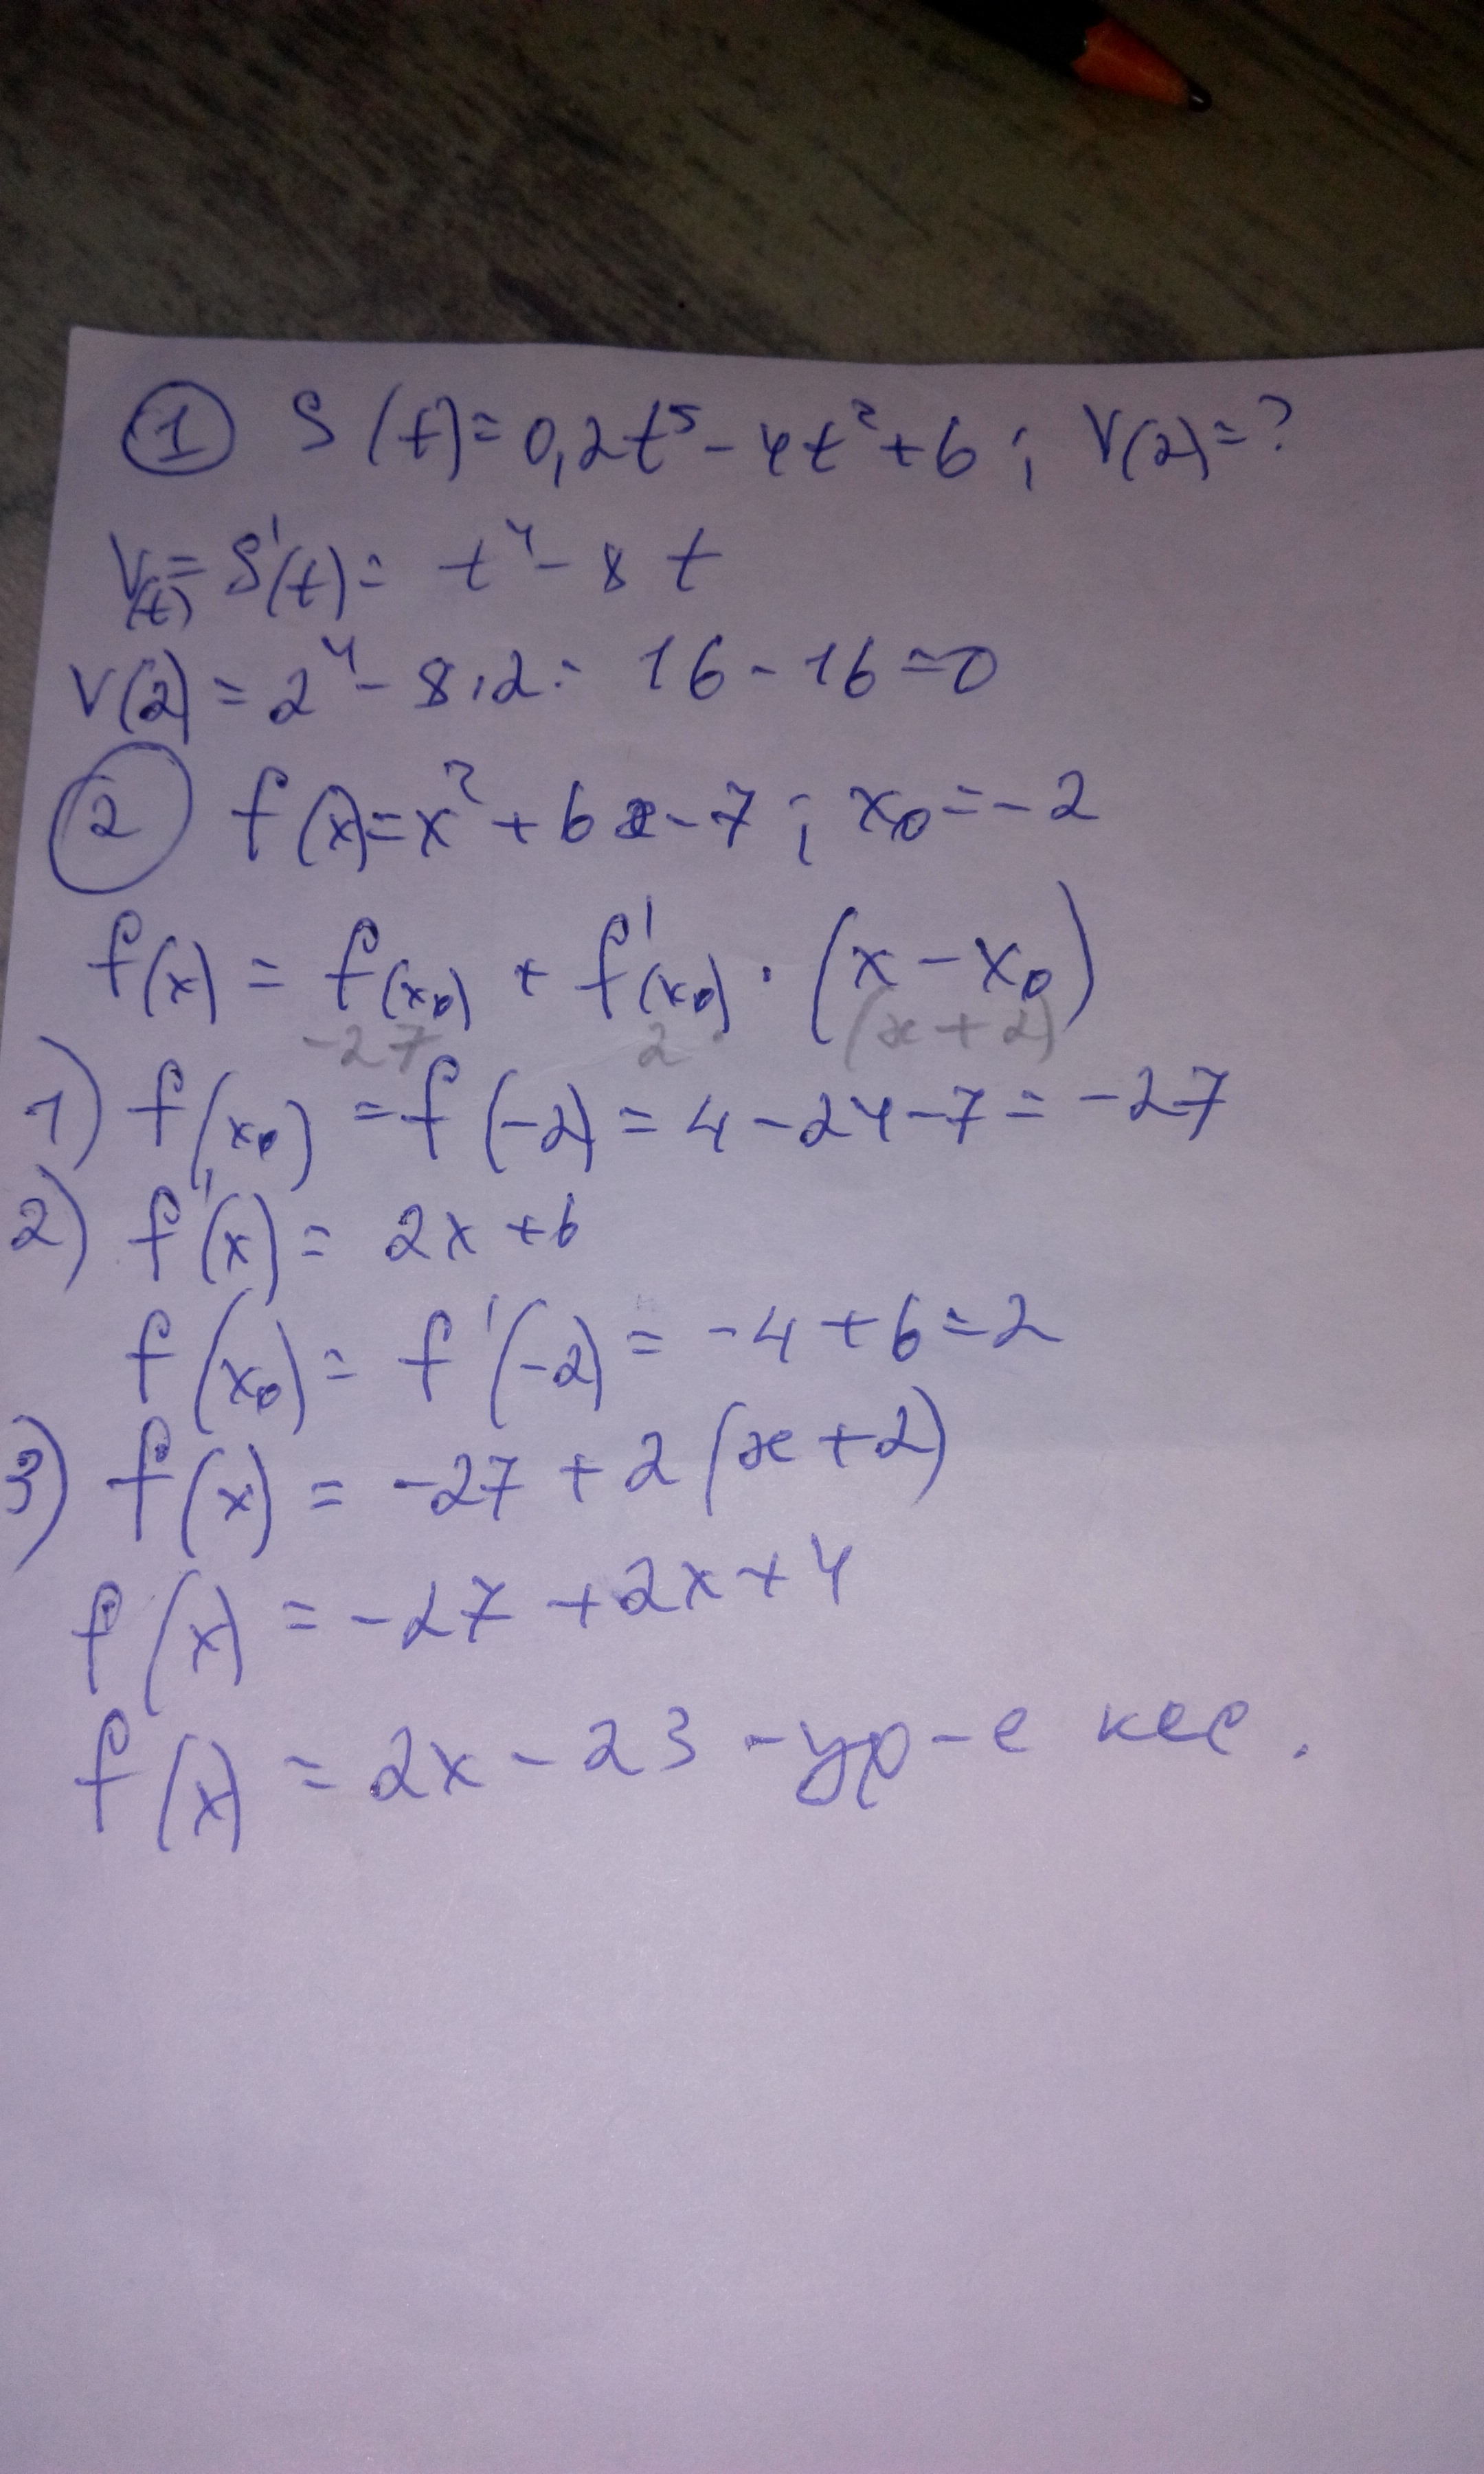 ① S(t)=0,2t⁵-4t²+6; V(2)=?
V(t)=S'(t)=t⁴-8t
V(2)=2⁴-8·2=16-16=0
② f(x)=x²+6x-7; x₀=-2
f(x)=f(x₀)+f'(x₀)·(x-x₀)
-27 2· (x+2)
1) f(x₀)=f(-2)=4-24-7=-27
2) f'(x)=2x+6
f(x₀)=f'(-2)=-4+6=2
3) f(x)=-27+2(x+2)
f(x)=-27+2x+4
f(x)=2x-23-ур-е кас.